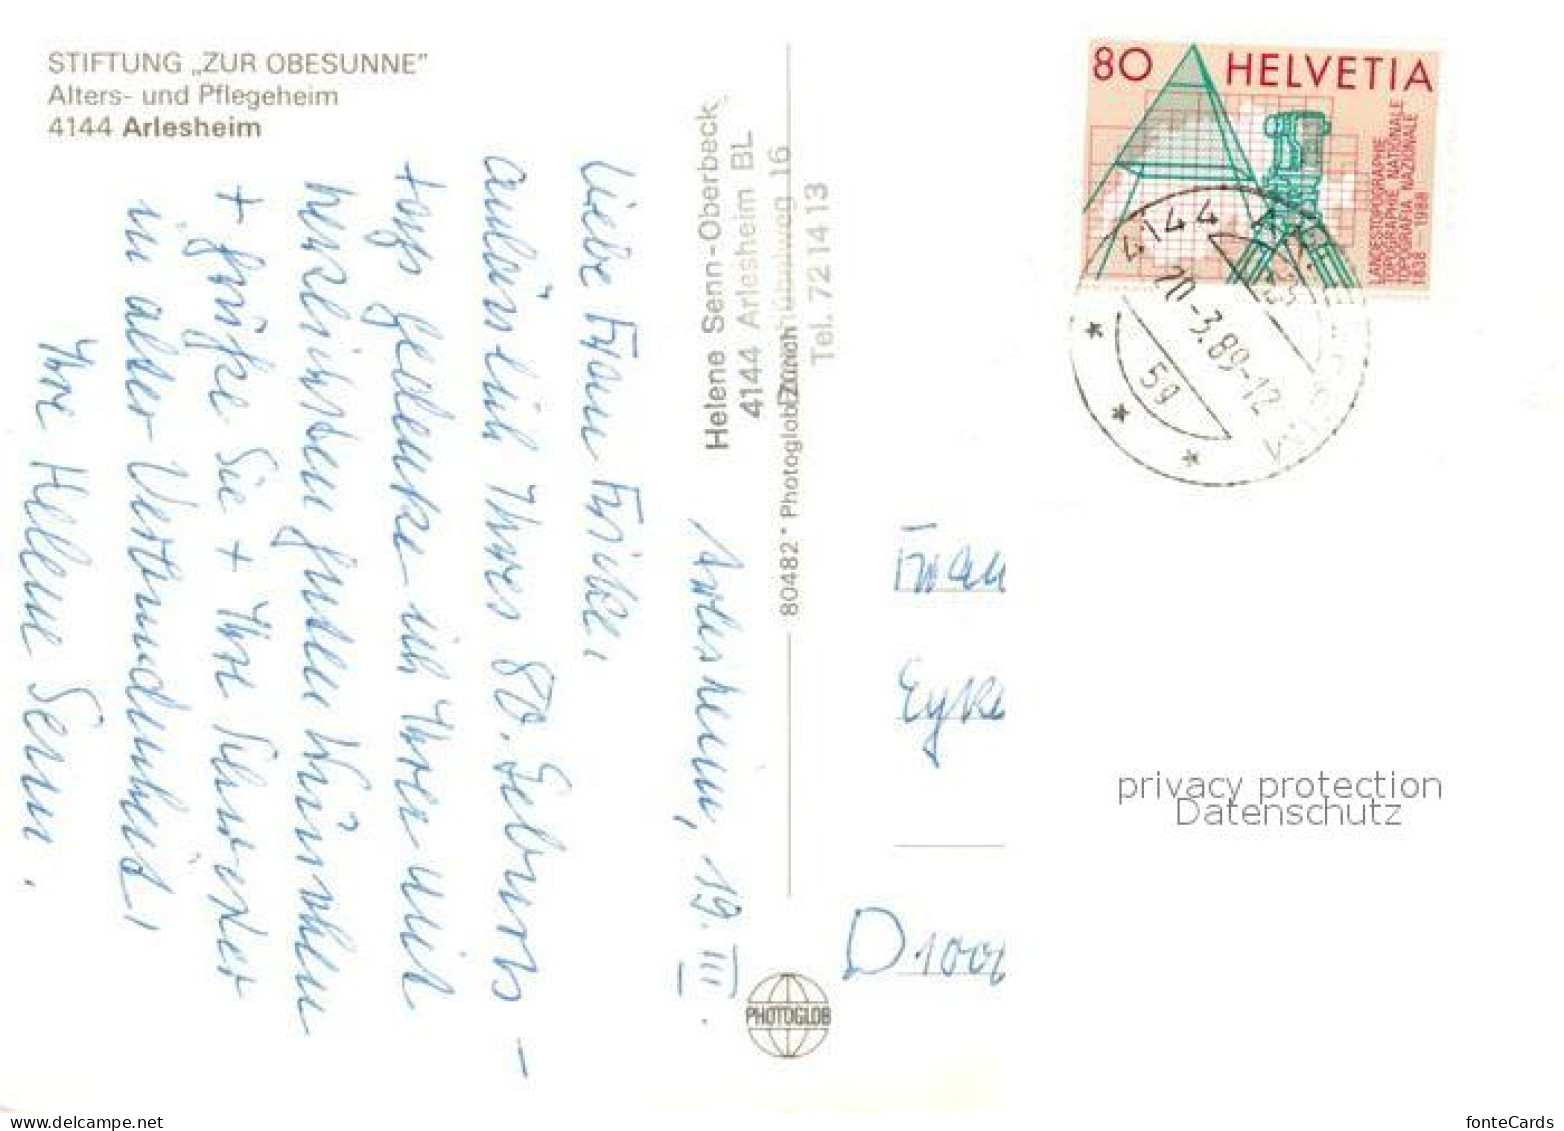 STIFTUNG „ZUR OBESUNNE”
Alters- und Pflegeheim
4144 Arlesheim
Helene Senn-Oberbeck
4144 Arlesheim BL
Tel. 72 14 13
80482 * Photoglob Zürich
Arlesheim, 19. III.
Liebe Frau Fricke,
anlässlich Ihres 80. Geburts-
tags gedenke ich Ihrer mit
herzlichsten guten Wünschen
+ grüsse Sie + Ihre Schwester
in alter Verbundenheit,
Ihre Helene Senn.
80 HELVETIA
LANDESTOPOGRAPHIE
TOPOGRAPHIE NATIONALE
TOPOGRAFIA NAZIONALE
1838 – 1988
4144 ARLESHEIM
20.-3.89-12
5g
Frau
D 100
PHOTOGLOB
privacy protection
Datenschutz
fonteCards
www.delcampe.net